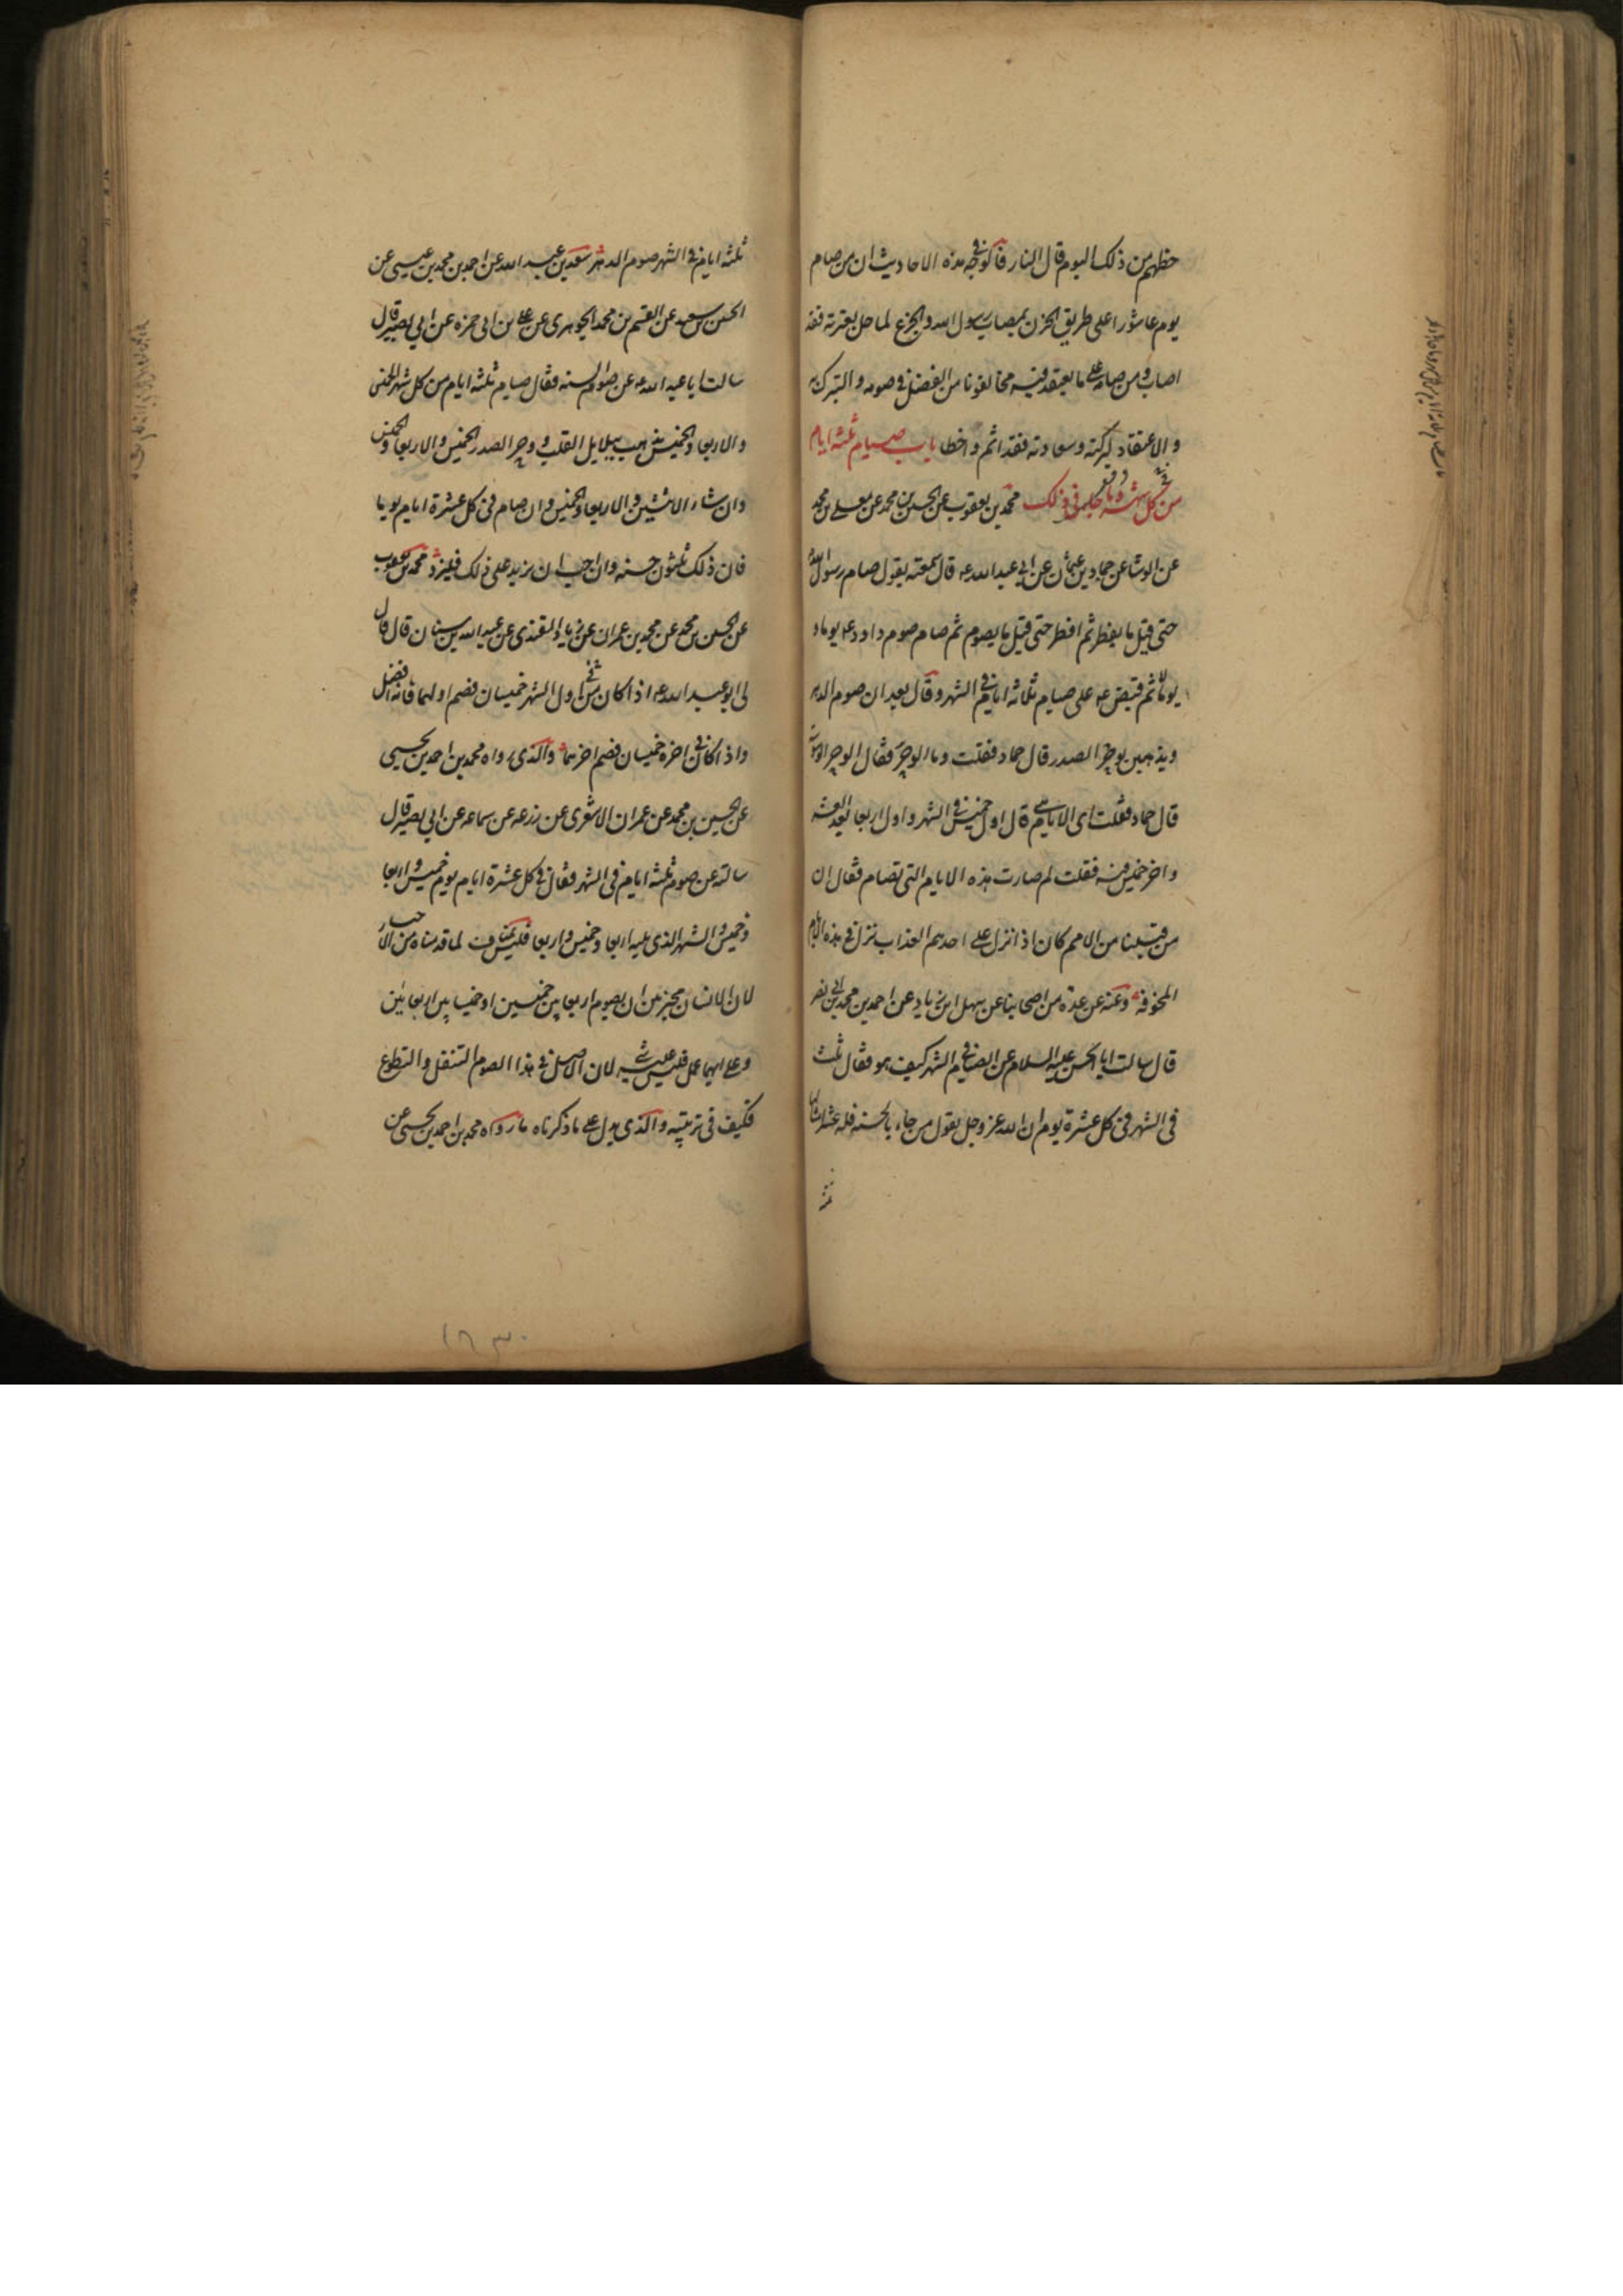 حظهم من ذلك اليوم قال النار فالوجه في هذه الاحاديث ان من صام
يوم عاشورا على طريق الحزن بمصاب رسول الله والجزع لما حل بعترته فقد
اصاب ومن صامه على ما يعتقد فيه مخالفونا من الفضل في صومه والتبرك به
والاعتقاد لبركته وسعادته فقد اثم واخطا باب صيام ثلثه ايام
من كل شهر وما جا في ذلك محمد بن يعقوب عن الحسين بن محمد عن معلى بن محمد
عن الوشا عن حماد بن عثمان عن ابي عبد الله ع قال سمعته يقول صام رسول الله
حتى قيل ما يفطر ثم افطر حتى قيل ما يصوم ثم صام صوم داود ع يوما و
يوما لا ثم قبض ع على صيام ثلاثه ايام في الشهر وقال يعدلن صوم الدهر
ويذهبن بوحر الصدر قال حماد فقلت وما الوحر فقال الوحر الوسوسة
قال حماد فقلت اي الايام هي قال اول خميس في الشهر واول اربعا بعد العشر
واخر خميس فيه فقلت لم صارت هذه الايام التي تصام فقال ان
من قبلنا من الامم كان اذا نزل على احدهم العذاب نزل في هذه الايام
المخوفه وعنه عن عدة من اصحابنا عن سهل بن زياد عن احمد بن محمد بن ابي نصر
قال سالت ابا الحسن عليه السلام عن الصيام في الشهر كيف هو فقال ثلث
في الشهر في كل عشرة يوم ان الله عز وجل يقول من جاء بالحسنه فله عشر امثالها
ثلثه
ثلثه ايام في الشهر صوم الدهر سعد بن عبد الله عن احمد بن محمد بن عيسى عن
الحسن بن سعيد عن القسم بن محمد الجوهري عن علي بن ابي حمزه عن ابي بصير قال
سالت ابا عبد الله ع عن صوم السنه فقال صيام ثلثه ايام من كل شهر الخميس
والاربعا والخميس يذهب ببلابل القلب و وحر الصدر الخميس والاربعا والخميس
وان شاء الاثنين والاربعا والخميس وان صام في كل عشرة ايام يوما
فان ذلك ثلثون حسنه وان احب ان يزيد على ذلك فليزد محمد بن يعقوب
عن الحسين بن محمد عن محمد بن عمران عن زياد القندي عن عبد الله بن سنان قال قال
لي ابو عبد الله ع اذا كان في اول الشهر خميسان فصم اولهما فانه افضل
واذا كان في اخره خميسان فصم اخرهما والذي رواه محمد بن احمد بن يحيى
عن الحسين بن محمد عن عمران الاشعري عن زرعه عن سماعه عن ابي بصير قال
سالته عن صوم ثلثه ايام في الشهر فقال في كل عشرة ايام يوم خميس واربعا
وخميس والشهر الذي يليه اربعا وخميس واربعا فليس بمناف لما قدمناه من الاخبار
لان الانسان مخير بين ان يصوم اربعا بين خميسين او خميسا بين اربعائين
وعلى ايهما عمل فليس عليه شي لان الاصل في هذا الصوم التنفل والتطوع
فكيف في ترتيبه والذي يدل على ما ذكرناه ما رواه محمد بن احمد بن يحيى عن